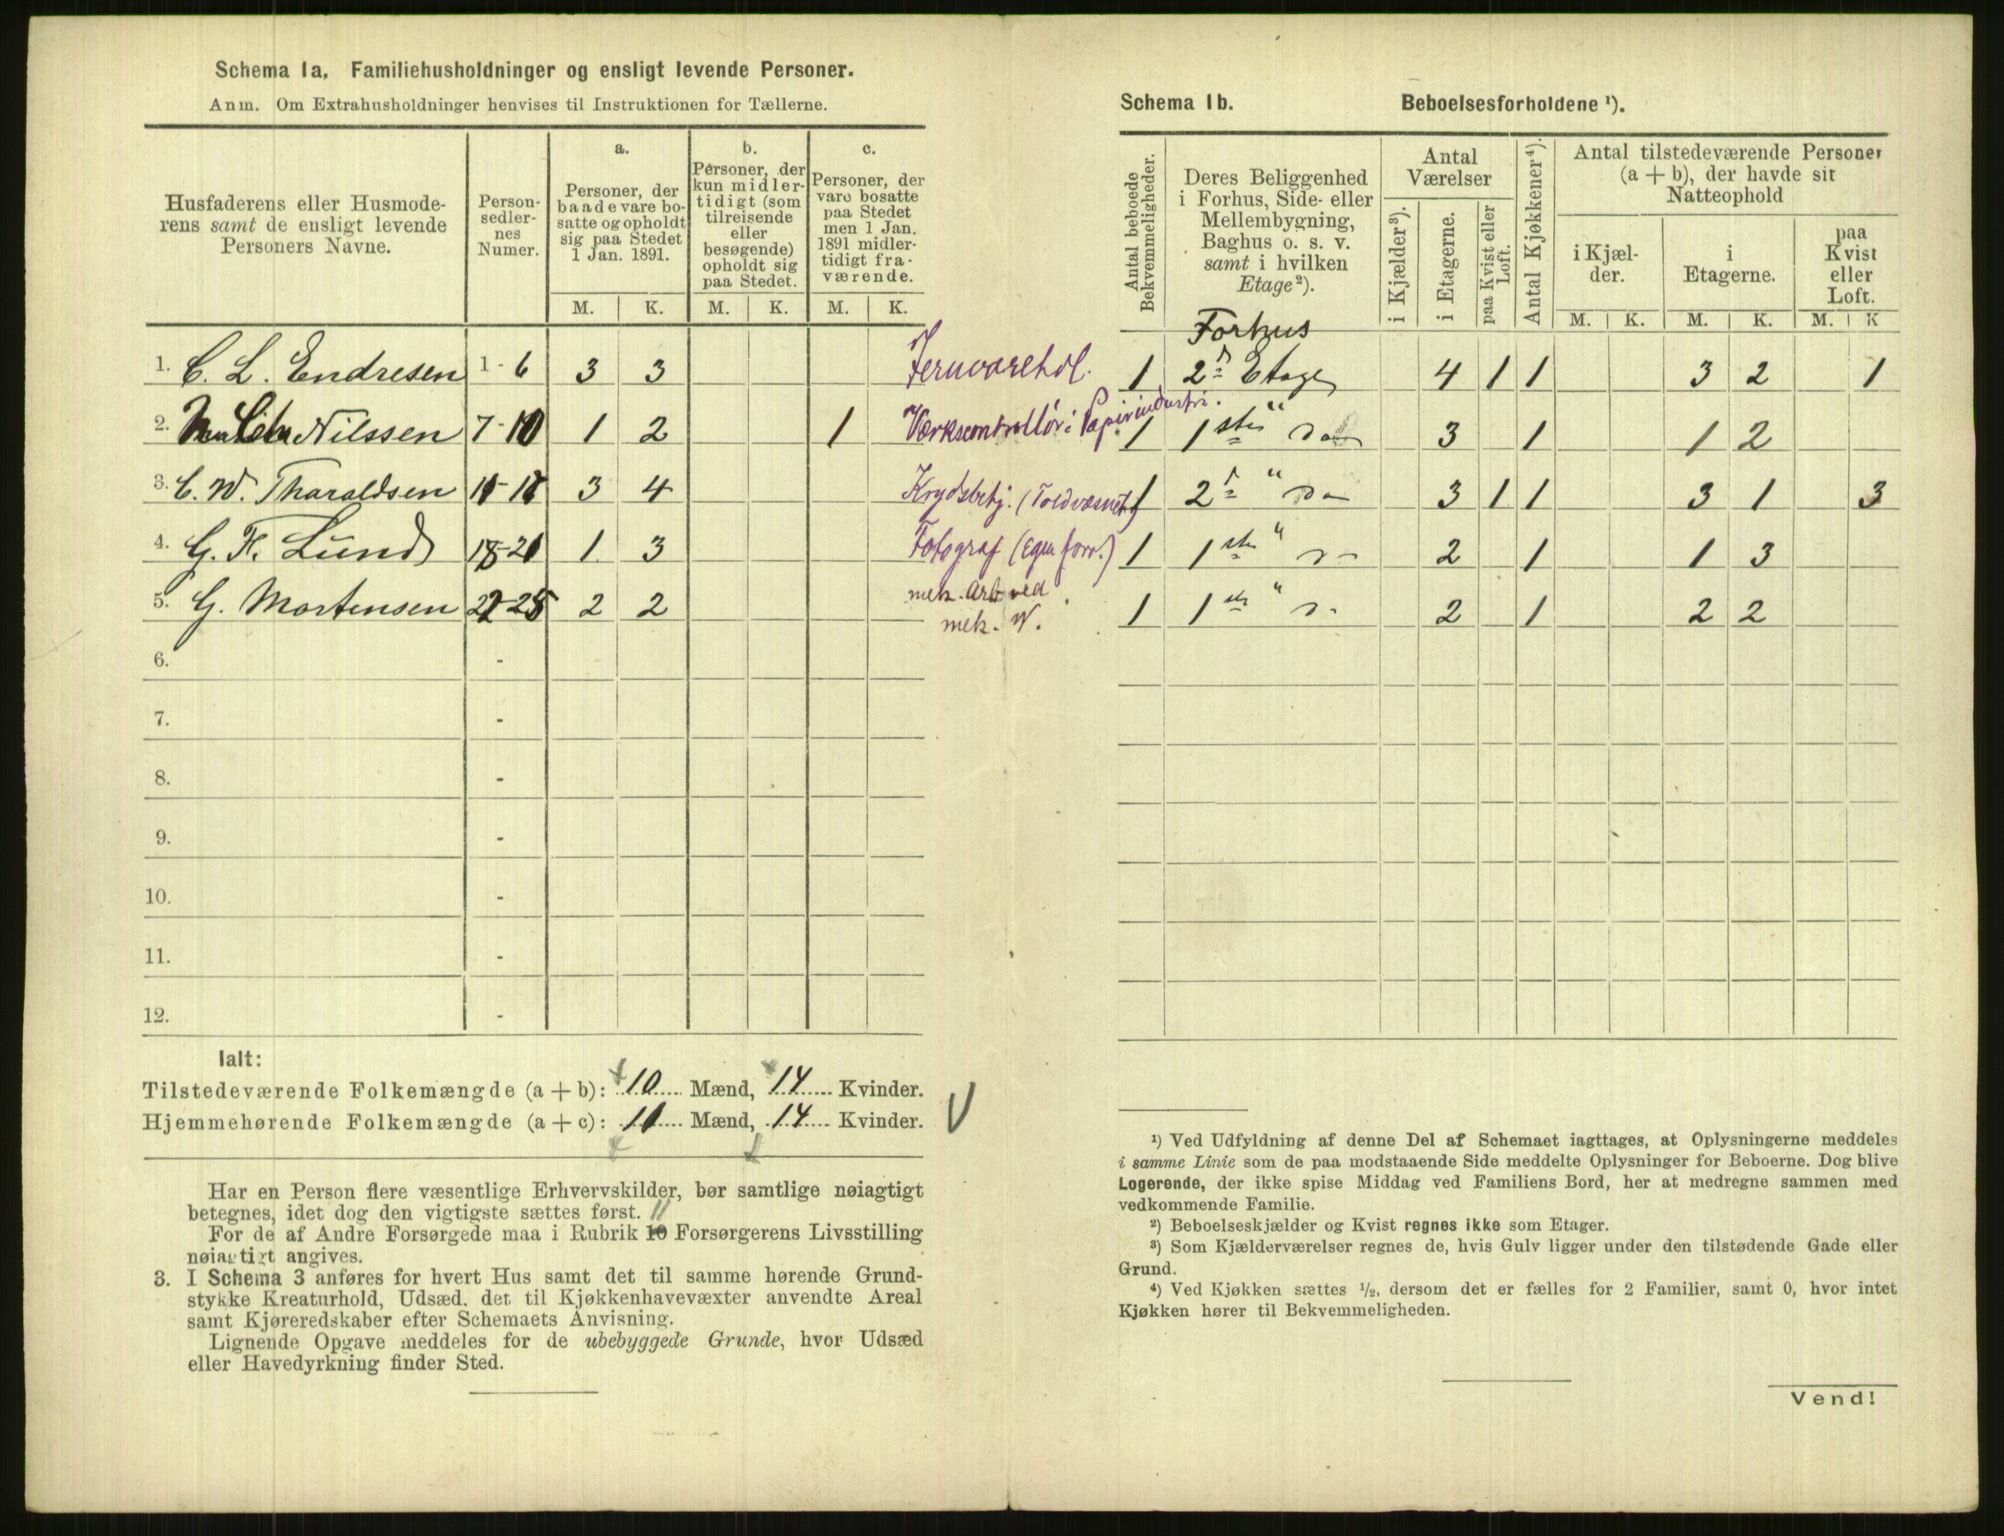 Schema 1a. Familiehusholdninger og ensligt levende Personer.
Anm. Om Extrahusholdninger henvises til Instruktionen for Tællerne.
Husfaderens eller Husmode-
rens samt de ensligt levende
Personers Navne.
Person-
sedler-
nes
Numer.
a.
Personer, der
baade vare bo-
satte og opholdt
sig paa Stedet
1 Jan. 1891.
b.
Personer, der
kun midler-
tidigt (som
tilreisende
eller
besøgende)
opholdt sig
paa Stedet.
c.
Personer, der
vare bosatte
paa Stedet
men 1 Jan.
1891 midler-
tidigt fra-
værende.
M. K. M. K. M. K.
1. C. L. Endresen 1-6 3 3 Jernvarehdl.
2. Nilssen 7-10 1 2 1 Værkscontrollör i Papirindustri.
3. C. W. Tharaldsen 11-17 3 4 Krydsbetj. (Toldvæsnet)
4. G. F. Lund 18-21 1 3 Fotograf (egen forr.)
5. G. Mortensen 22-25 2 2 mek. Arb ved
mek. V.
6. -
7. -
8. -
9. -
10. -
11. -
12. -
Ialt:
Tilstedeværende Folkemængde (a + b): 10 Mænd, 14 Kvinder.
Hjemmehørende Folkemængde (a + c): 11 Mænd, 14 Kvinder.
Har en Person flere væsentlige Erhvervskilder, bør samtlige nøiagtigt
betegnes, idet dog den vigtigste sættes først. 11
For de af Andre Forsørgede maa i Rubrik 10 Forsørgerens Livsstilling
nøiagtigt angives.
3. I Schema 3 anføres for hvert Hus samt det til samme hørende Grund-
stykke Kreaturhold, Udsæd, det til Kjøkkenhavevæxter anvendte Areal
samt Kjøreredskaber efter Schemaets Anvisning.
Lignende Opgave meddeles for de ubebyggede Grunde, hvor Udsæd
eller Havedyrkning finder Sted.
Schema 1b. Beboelsesforholdene ¹).
Antal beboede
Bekvemmeligheder.
Deres Beliggenhed
i Forhus, Side- eller
Mellembygning,
Baghus o. s. v.
samt i hvilken
Etage²).
Antal
Værelser
i Kjælder³).
i Etagerne.
paa Kvist eller
Loft.
Antal Kjøkkener⁴).
Antal tilstedeværende Personer
(a + b), der havde sit
Natteophold
i Kjæl-
der.
i
Etagerne.
paa
Kvist
eller
Loft.
M. K. M. K. M. K
Forhus
1 2 Etage 4 1 1 3 2 1
1 1ste " Do 3 1 1 2
1 2 " Do 3 1 1 3 1 3
1 1ste " Do 2 1 1 3
1 1ste " Do 2 1 2 2
¹) Ved Udfyldning af denne Del af Schemaet iagttages, at Oplysningerne meddeles
i samme Linie som de paa modstaaende Side meddelte Oplysninger for Beboerne. Dog blive
Logerende, der ikke spise Middag ved Familiens Bord, her at medregne sammen med
vedkommende Familie.
²) Beboelseskjælder og Kvist regnes ikke som Etager.
³) Som Kjælderværelser regnes de, hvis Gulv ligger under den tilstødende Gade eller
Grund.
⁴) Ved Kjøkken sættes ½, dersom det er fælles for 2 Familier, samt 0, hvor intet
Kjøkken hører til Bekvemmeligheden.
Vend!